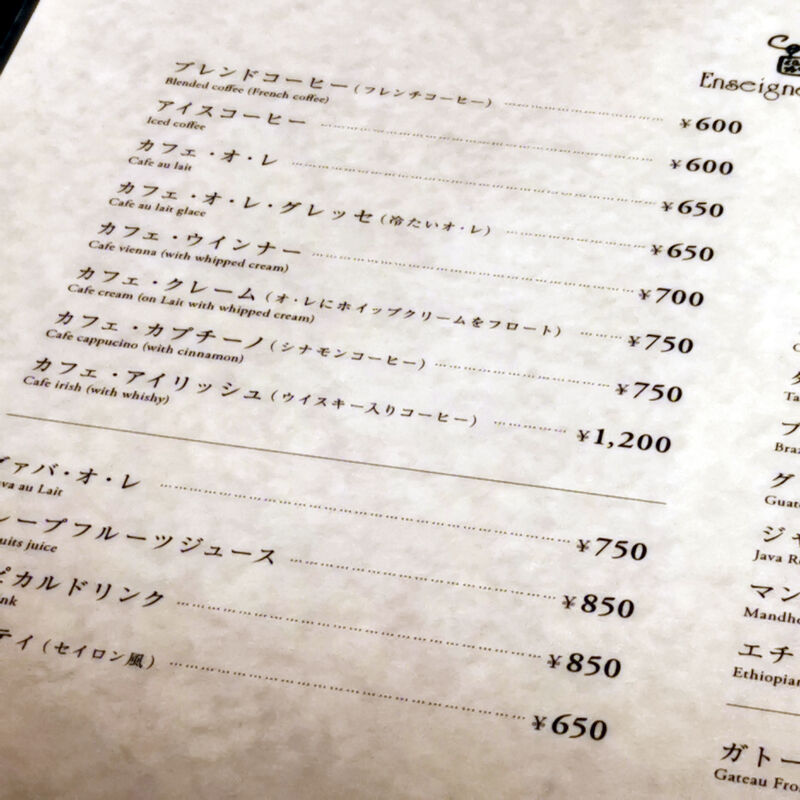 ブレンドコーヒー(フレンチコーヒー) ¥600
Blended coffee (French coffee)
アイスコーヒー ¥600
Iced coffee
カフェ・オ・レ ¥650
Cafe au lait
カフェ・オ・レ・グレッセ(冷たいオ・レ) ¥650
Cafe au lait glace
カフェ・ウインナー ¥700
Cafe vienna (with whipped cream)
カフェ・クレーム(オ・レにホイップクリームをフロート) ¥750
Cafe cream (on Lait with whipped cream)
カフェ・カプチーノ(シナモンコーヒー) ¥750
Cafe cappucino (with cinnamon)
カフェ・アイリッシュ(ウイスキー入りコーヒー) ¥1,200
Cafe irish (with whishy)
ァバ・オ・レ ¥750
va au Lait
ープフルーツジュース ¥850
uits juice
ピカルドリンク ¥850
nk
ティ(セイロン風) ¥650
Enseign
Ta
ブ
Braz
グ
Guat
ジャ
Java R
マン
Mandh
エチ
Ethiopian
ガトー
Gateau Fro